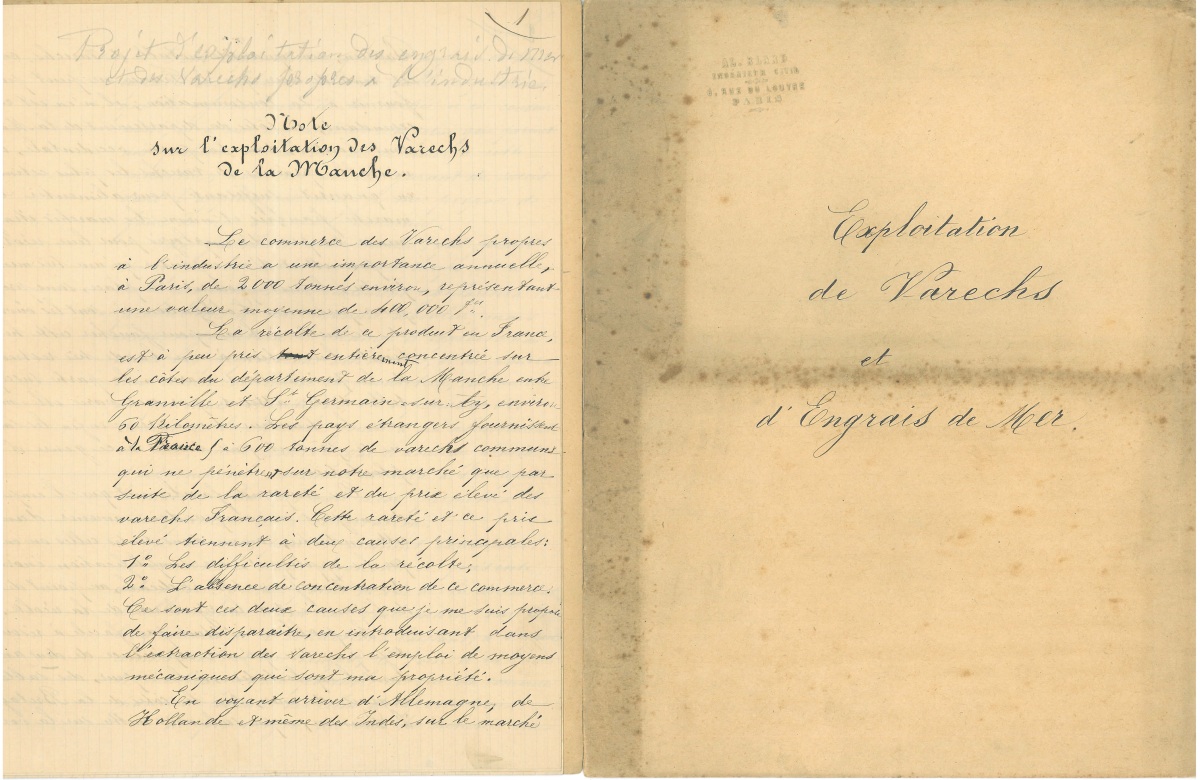 1
Projet d'exploitation des engrais de mer
et des Varechs propres à l'industrie
Note
sur l'exploitation des Varechs
de la Manche.
Le commerce des Varechs propres
à l'industrie a une importance annuelle,
à Paris, de 2000 tonnes environ, représentant
une valeur moyenne de 400,000 frs.
La récolte de ce produit en France,
est à peu près entièrement concentrée sur
les côtes du département de la Manche entre
Granville et St Germain-sur-Ay, environ
60 kilomètres. Les pays étrangers fournissent
à la France 5 à 600 tonnes de varechs communs
qui ne pénètrent sur notre marché que par
suite de la rareté et du prix élevé des
varechs Français. Cette rareté et ce prix
élevé tiennent à deux causes principales:
1o Les difficultés de la récolte;
2o L'absence de concentration de ce commerce.
Ce sont ces deux causes que je me suis proposé
de faire disparaître, en introduisant dans
l'extraction des varechs l'emploi de moyens
mécaniques qui sont ma propriété.
En voyant arriver d'Allemagne, de
Hollande et même des Indes, sur le marché
INGÉNIEUR CIVIL
PARIS
Exploitation
de Varechs
et
d'Engrais de Mer.